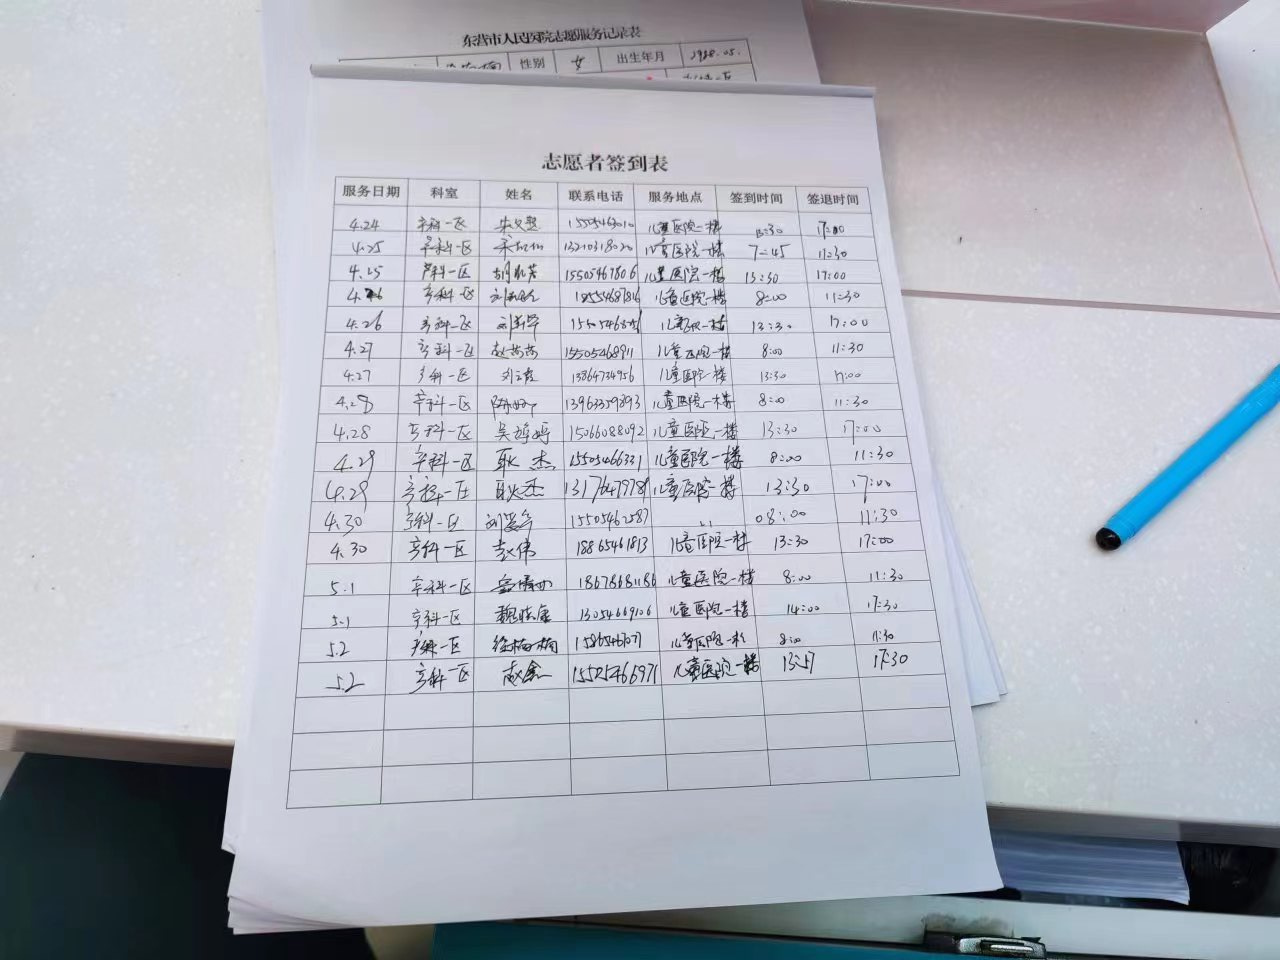 东营市人民医院志愿服务记录表
性别 女 出生年月 1988.05.
志愿者签到表
服务日期 科室 姓名 联系电话 服务地点 签到时间 签退时间
4.24 产科一区 儿童医院一楼 13:30 17:00
4.25 产科一区 13210318020 儿童医院一楼 7:45 11:30
4.25 产科一区 15505467806 儿童医院一楼 13:30 17:00
4.26 产科一区 儿童医院一楼 8:00 11:30
4.26 产科一区 儿童医院一楼 13:30 17:00
4.27 产科一区 赵芮芮 15505468911 儿童医院一楼 8:00 11:30
4.27 产科一区 13864734956 儿童医院一楼 13:30 17:00
4.28 产科一区 儿童医院一楼 8:00 11:30
4.28 产科一区 吴婷婷 15066088092 儿童医院一楼 13:30 17:00
4.29 产科一区 耿杰 15505466331 儿童医院一楼 8:00 11:30
4.29 产科一区 耿杰 儿童医院一楼 13:30 17:00
4.30 产科一区 15505462587 08:00 11:30
4.30 产科一区 赵伟 18865461813 儿童医院一楼 13:30 17:00
5.1 产科一区 18678681186 儿童医院一楼 8:00 11:30
5.1 产科一区 13054669106 儿童医院一楼 14:00 17:30
5.2 产科一区 徐梅梅 儿童医院一楼 8:00 11:30
5.2 产科一区 赵鑫 15505466971 儿童医院一楼 13:57 17:30